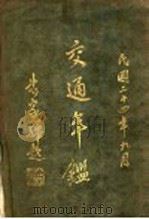 民國二十四年九月
交通年鑑